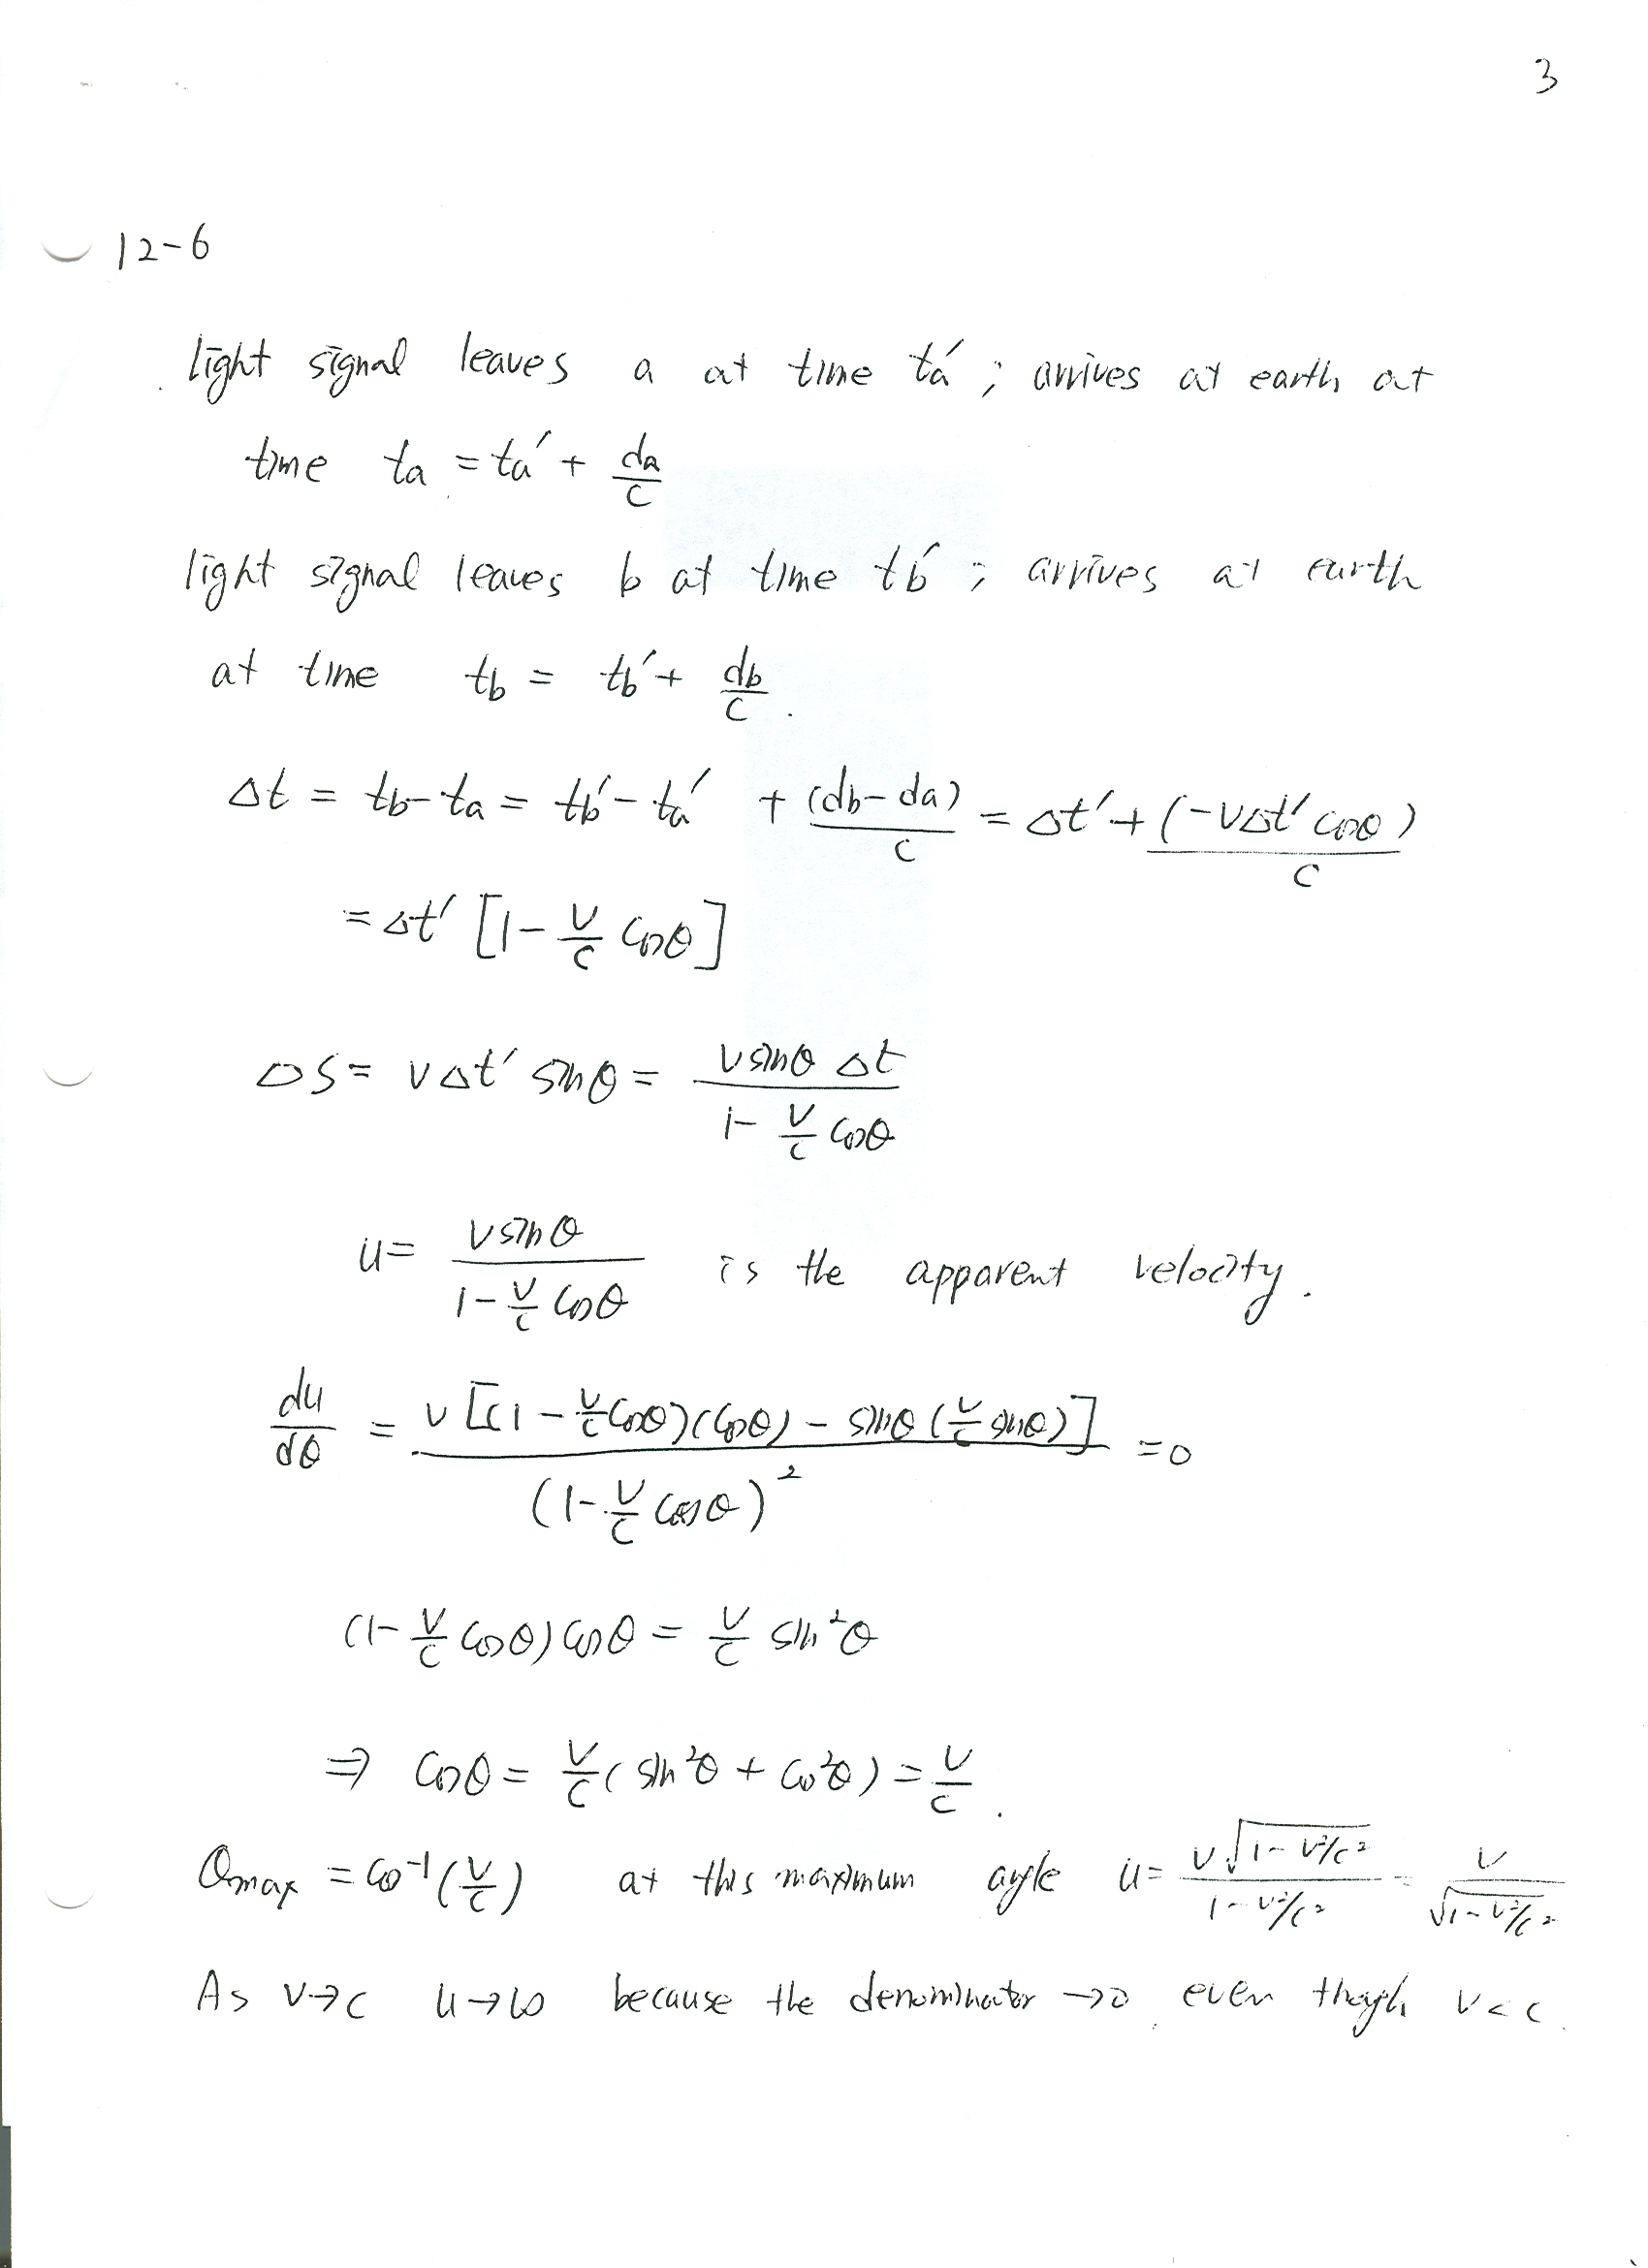 3
12-6
light signal leaves a at time ta′ ; arrives at earth at
time ta = ta′ + da/c
light signal leaves b at time tb′ ; arrives at earth
at time tb = tb′ + db/c .
Δt = tb - ta = tb′ - ta′ + (db - da)/c = Δt′ + (-vΔt′ cosθ)/c
= Δt′ [1 - v/c cosθ]
ΔS = vΔt′ sinθ = v sinθ Δt / (1 - v/c cosθ)
u = v sinθ / (1 - v/c cosθ) is the apparent velocity.
du/dθ = v [(1 - v/c cosθ)(cosθ) - sinθ (v/c sinθ)] / (1 - v/c cosθ)² = 0
(1 - v/c cosθ) cosθ = v/c sin²θ
⇒ cosθ = v/c (sin²θ + cos²θ) = v/c .
θmax = cos⁻¹(v/c) at this maximum angle u = v√(1 - v²/c²) / (1 - v²/c²) = v / √(1 - v²/c²)
As v→c u→∞ because the denominator →0 even though v<c.